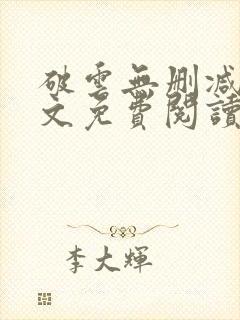 破雲無刪減
文免費閱讀
李大輝